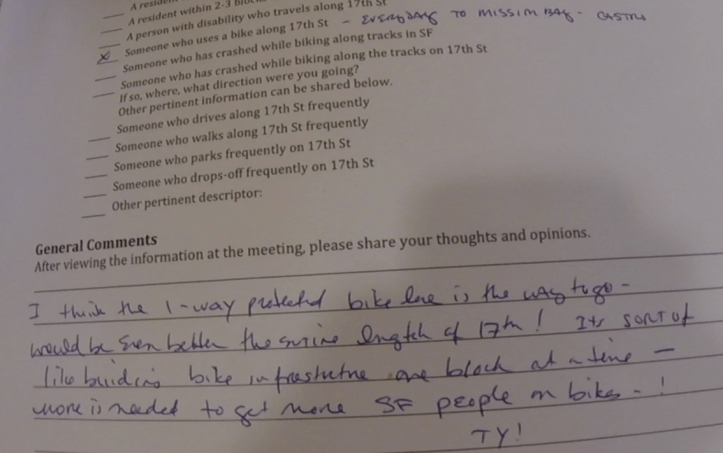 A resident
A resident within 2-3
A person with disability who travels along 17th St
x Someone who uses a bike along 17th St - EVERYDAY TO MISSION BAY - CASTRO
Someone who has crashed while biking along tracks in SF
Someone who has crashed while biking along the tracks on 17th St
If so, where, what direction were you going?
Other pertinent information can be shared below.
Someone who drives along 17th St frequently
Someone who walks along 17th St frequently
Someone who parks frequently on 17th St
Someone who drops-off frequently on 17th St
Other pertinent descriptor:
General Comments
After viewing the information at the meeting, please share your thoughts and opinions.
I think the 1-way protected bike lane is the way to go -
would be even better the entire length of 17th! Its SORT of
like building bike infrastructure one block at a time -
more is needed to get more SF people on bikes - !
TY!